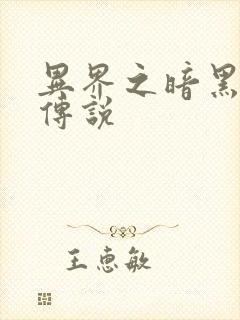 異界之暗黑
傳說
王惠敏